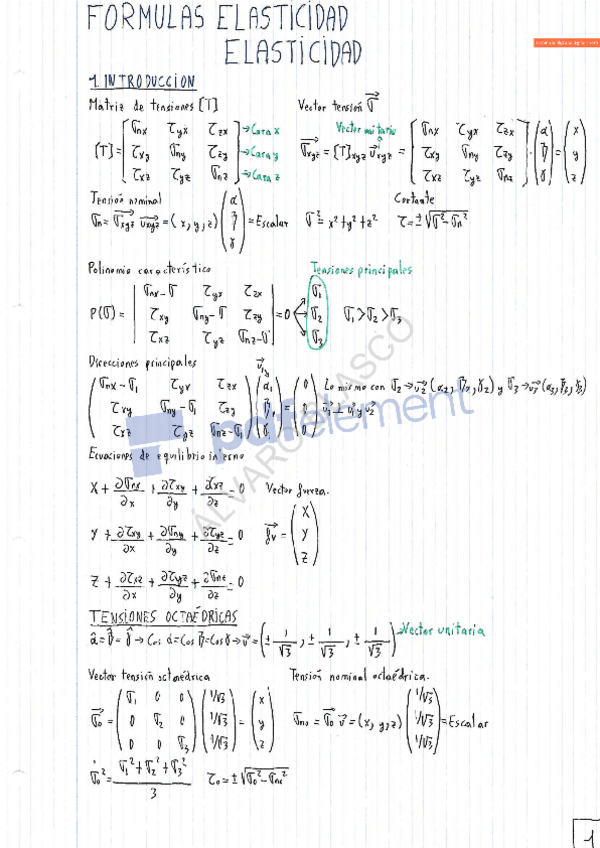 FORMULAS ELASTICIDAD
ELASTICIDAD
1. INTRODUCCION
Matriz de tensiones [T]
Vector tensión σ⃗
[T] = [σnx τyx τzx; τxy σny τzy; τxz τyz σnz]
→ Cara x
→ Cara y
→ Cara z
Vector unitario
σ⃗xyz = [T]xyz u⃗xyz = [σnx τyx τzx; τxy σny τzy; τxz τyz σnz] · (α; β; γ) = (x; y; z)
Tensión nominal
σn = σ⃗xyz u⃗xyz = (x, y, z) (α; β; γ) = Escalar
σ² = x² + y² + z²
Cortante
τ = ± √(σ² - σn²)
Polinomio característico
Tensiones principales
P(σ) = |σnx-σ τyx τzx; τxy σny-σ τzy; τxz τyz σnz-σ| = 0
σ1
σ2
σ3
σ1 > σ2 > σ3
Direcciones principales
(σnx-σ1 τyx τzx; τxy σny-σ1 τzy; τxz τyz σnz-σ1) (α1; β1; γ1) = (0; 0; 0)
Lo mismo con σ2 → u⃗2 (α2, β2, γ2) y σ3 → u⃗3 (α3, β3, γ3)
Ecuaciones de equilibrio interno
X + ∂σnx/∂x + ∂τxy/∂y + ∂τxz/∂z = 0
Vector fuerza.
Y + ∂τxy/∂x + ∂σny/∂y + ∂τyz/∂z = 0
f⃗v = (X; Y; Z)
Z + ∂τxz/∂x + ∂τyz/∂y + ∂σnz/∂z = 0
TENSIONES OCTAÉDRICAS
α̂ = β̂ = γ̂ → Cos α = Cos β = Cos γ → v⃗ = (± 1/√3, ± 1/√3, ± 1/√3) → Vector unitaria
Vector tensión octaédrica
Tensión nominal octaédrica.
σ⃗o = (σ1 0 0; 0 σ2 0; 0 0 σ3) (1/√3; 1/√3; 1/√3) = (x; y; z)
σno = σ⃗o v⃗ = (x, y, z) (1/√3; 1/√3; 1/√3) = Escalar
σo² = (σ1² + σ2² + σ3²)/3
τo = ± √(σo² - σno²)
1
ÁLVARO BLASCO
pdfelement